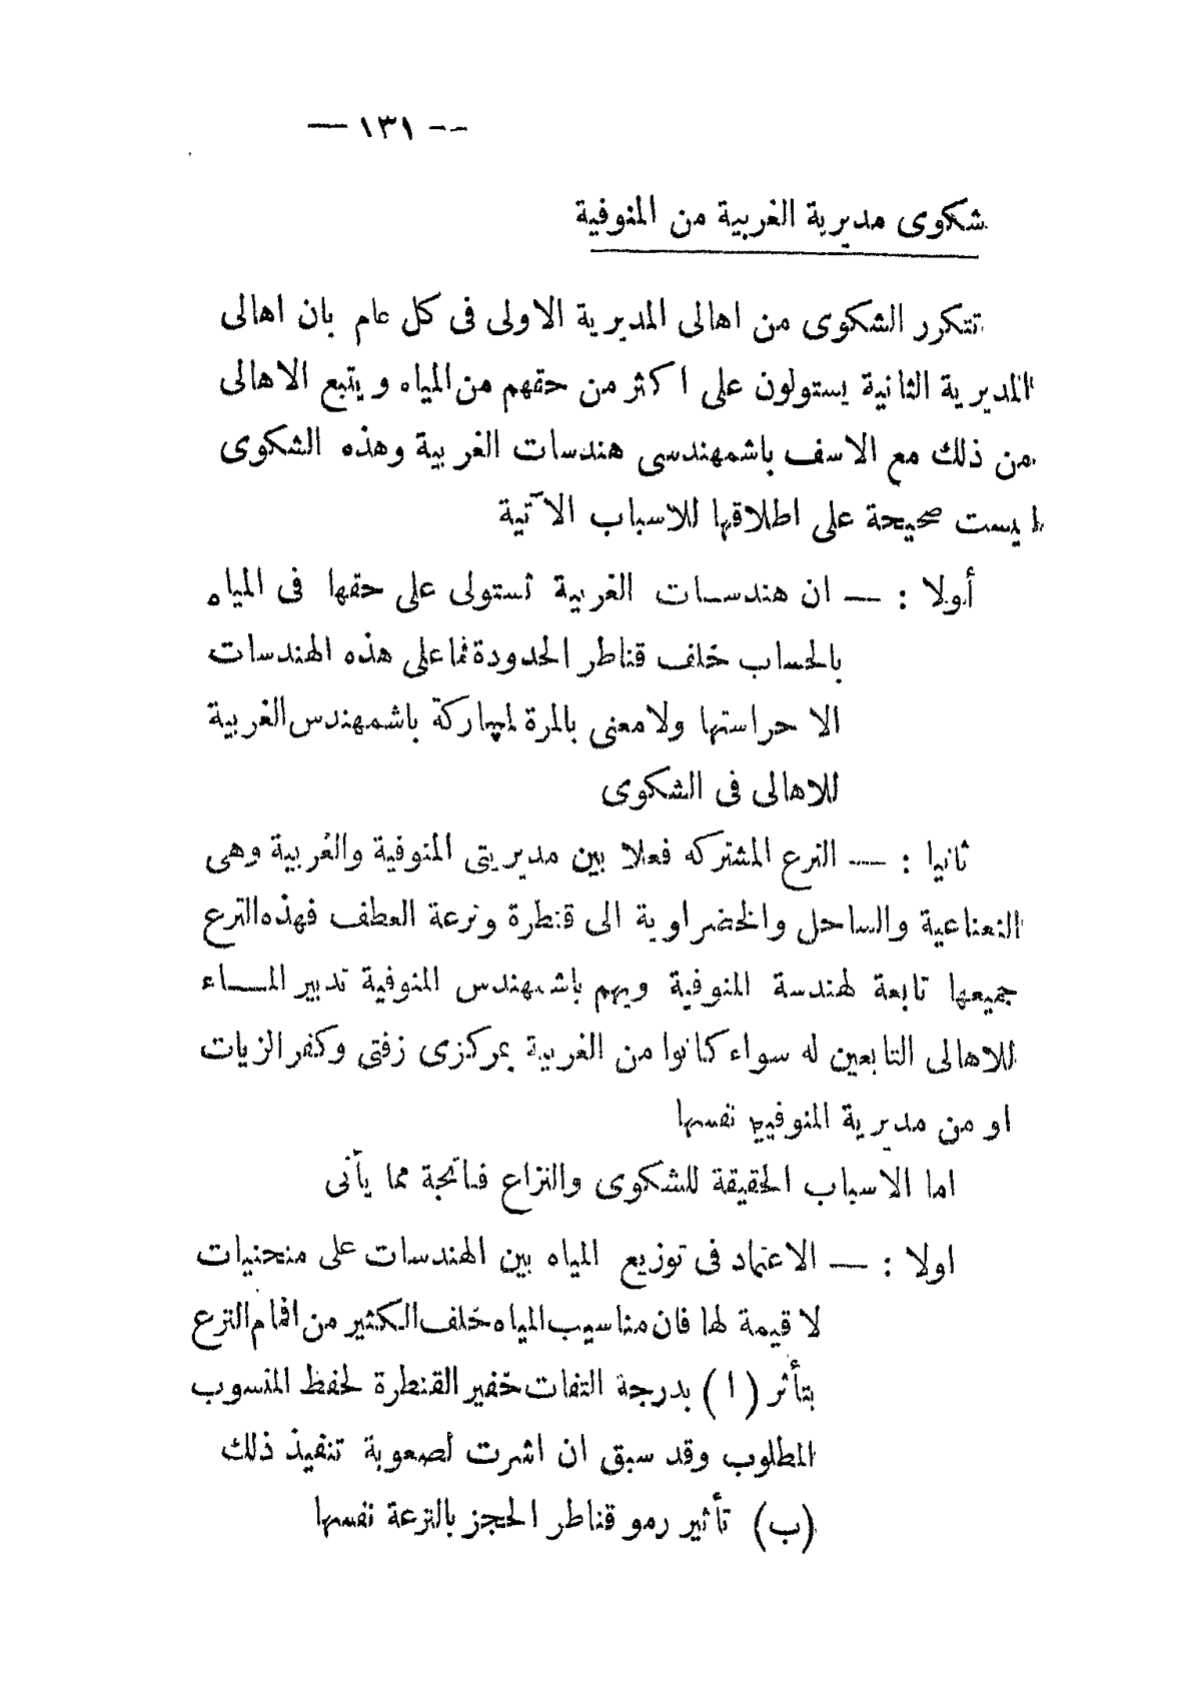 — ١٣١ —
شكوى مديرية الغربية من المنوفية
تتكرر الشكوى من اهالى المديرية الاولى فى كل عام بان اهالى
المديرية الثانية يستولون على اكثر من حقهم من المياه ويتبع الاهالى
من ذلك مع الاسف باشمهندسى هندسات الغربية وهذه الشكوى
ليست صحيحة على اطلاقها للاسباب الآتية
أولا : — ان هندسات الغربية تستولى على حقها فى المياه
بالحساب خلف قناطر الحدودة فما على هذه الهندسات
الا حراستها ولا معنى بالمرة باشمهندس الغربية
للاهالى فى الشكوى
ثانيا : — الترع المشتركه فعلا بين مديريتى المنوفية والغربية وهى
النعناعية والساحل والخضراوية الى قنطرة وترعة العطف فهذه الترع
جميعها تابعة لهندسة المنوفية ويهم باشمهندس المنوفية تدبير المـــاء
للاهالى التابعين له سواء كانوا من الغربية بمركزى زفتى وكفر الزيات
او من مديرية المنوفية نفسها
اما الاسباب الحقيقة للشكوى والنزاع فناتجة مما يأتى
اولا : — الاعتماد فى توزيع المياه بين الهندسات على منحنيات
لا قيمة لها فان مناسيب المياه خلف الكثير من افمام الترع
يتأثر (ا) بدرجة التفات خفير القنطرة لحفظ المنسوب
المطلوب وقد سبق ان اشرت لصعوبة تنفيذ ذلك
(ب) تأثير رمو قناطر الحجز بالترعة نفسها